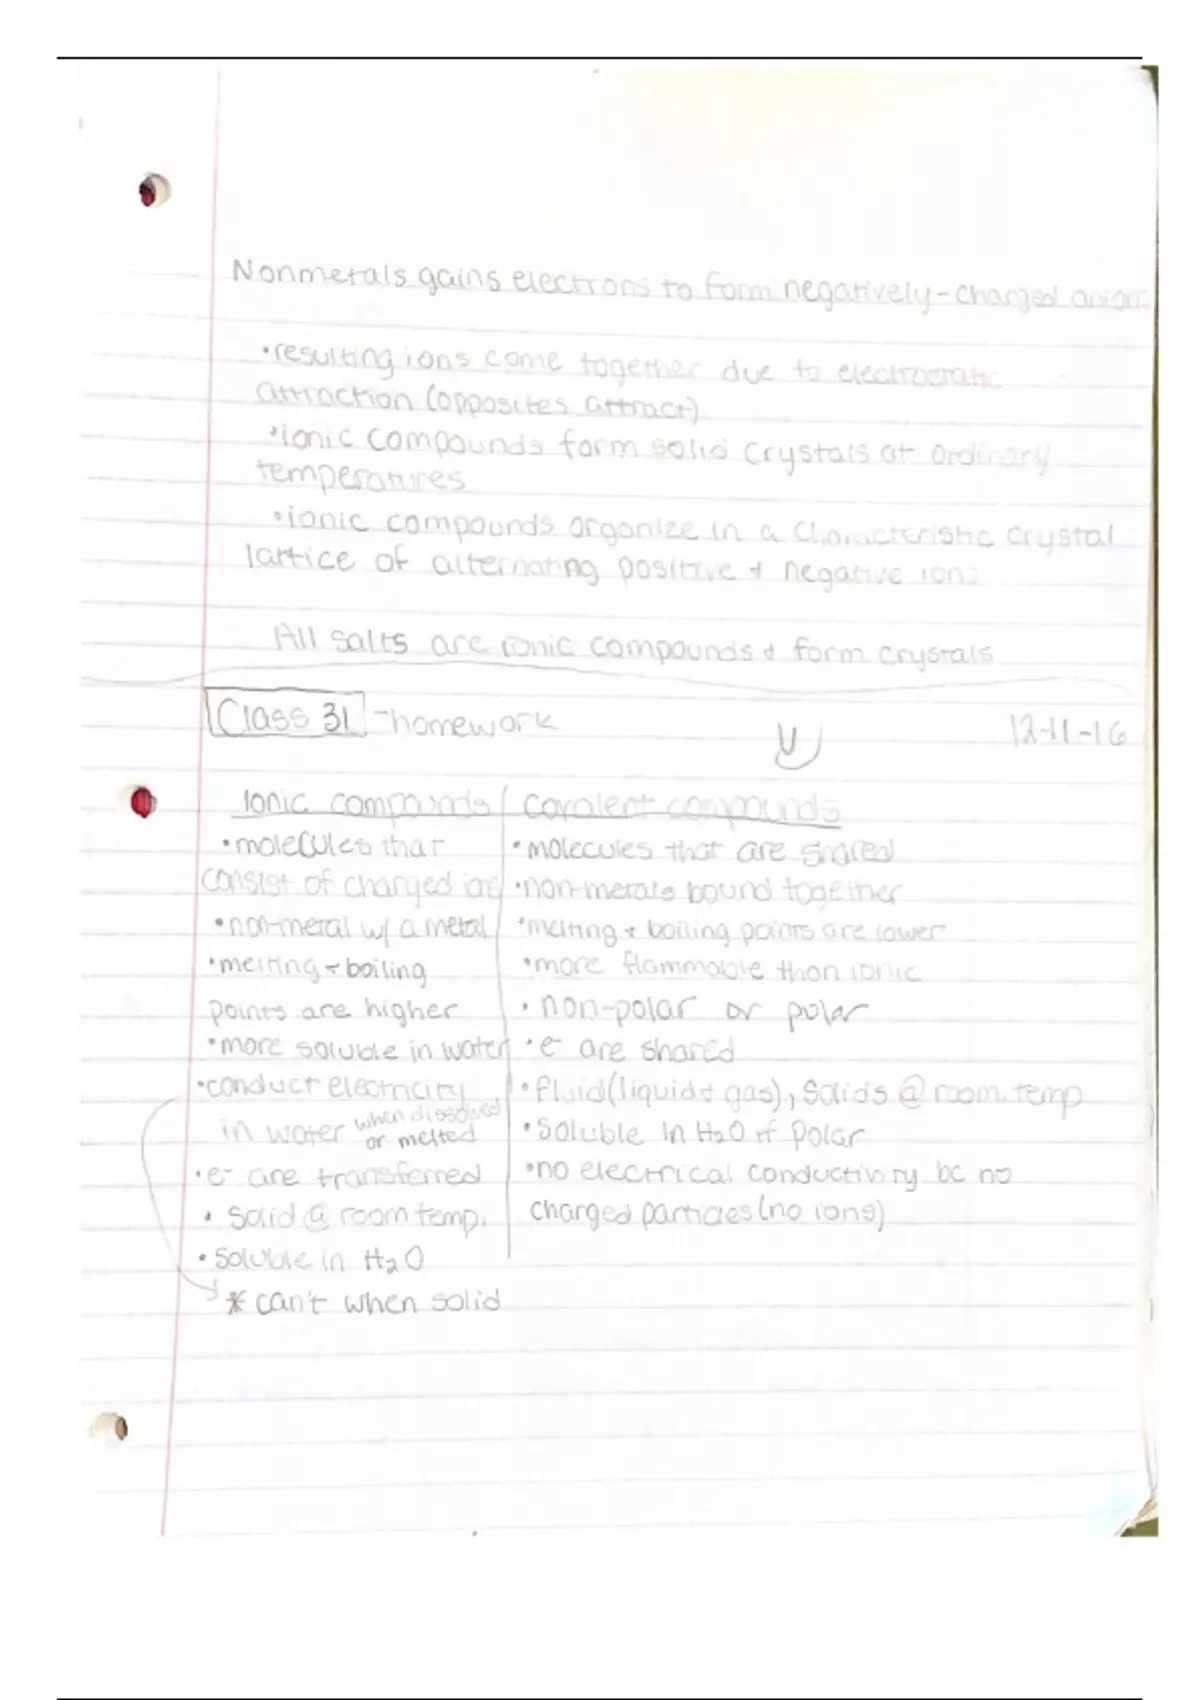 Nonmetals gains electrons to form negatively-charged anions
•resulting ions come together due to electrostatic
attraction (opposites attract)
•ionic compounds form solid crystals at ordinary
temperatures
•ionic compounds organize in a characteristic crystal
lattice of alternating positive + negative ions
All salts are ionic compounds & form crystals
Class 31 -homework
12-11-16
Ionic compounds
•molecules that
consist of charged ions
•non-metal w/ a metal
•melting + boiling
points are higher
•more soluble in water
•conduct electricity
in water when dissolved
or melted
•e- are transferred
•solid @ room temp.
•soluble in H2O
* can't when solid
Covalent compounds
•molecules that are shared
•non-metals bound together
•melting + boiling points are lower
•more flammable than ionic
•non-polar or polar
•e- are shared
•fluid (liquid + gas), solids @ room temp
•soluble in H2O if polar
•no electrical conductivity bc no
charged particles (no ions)